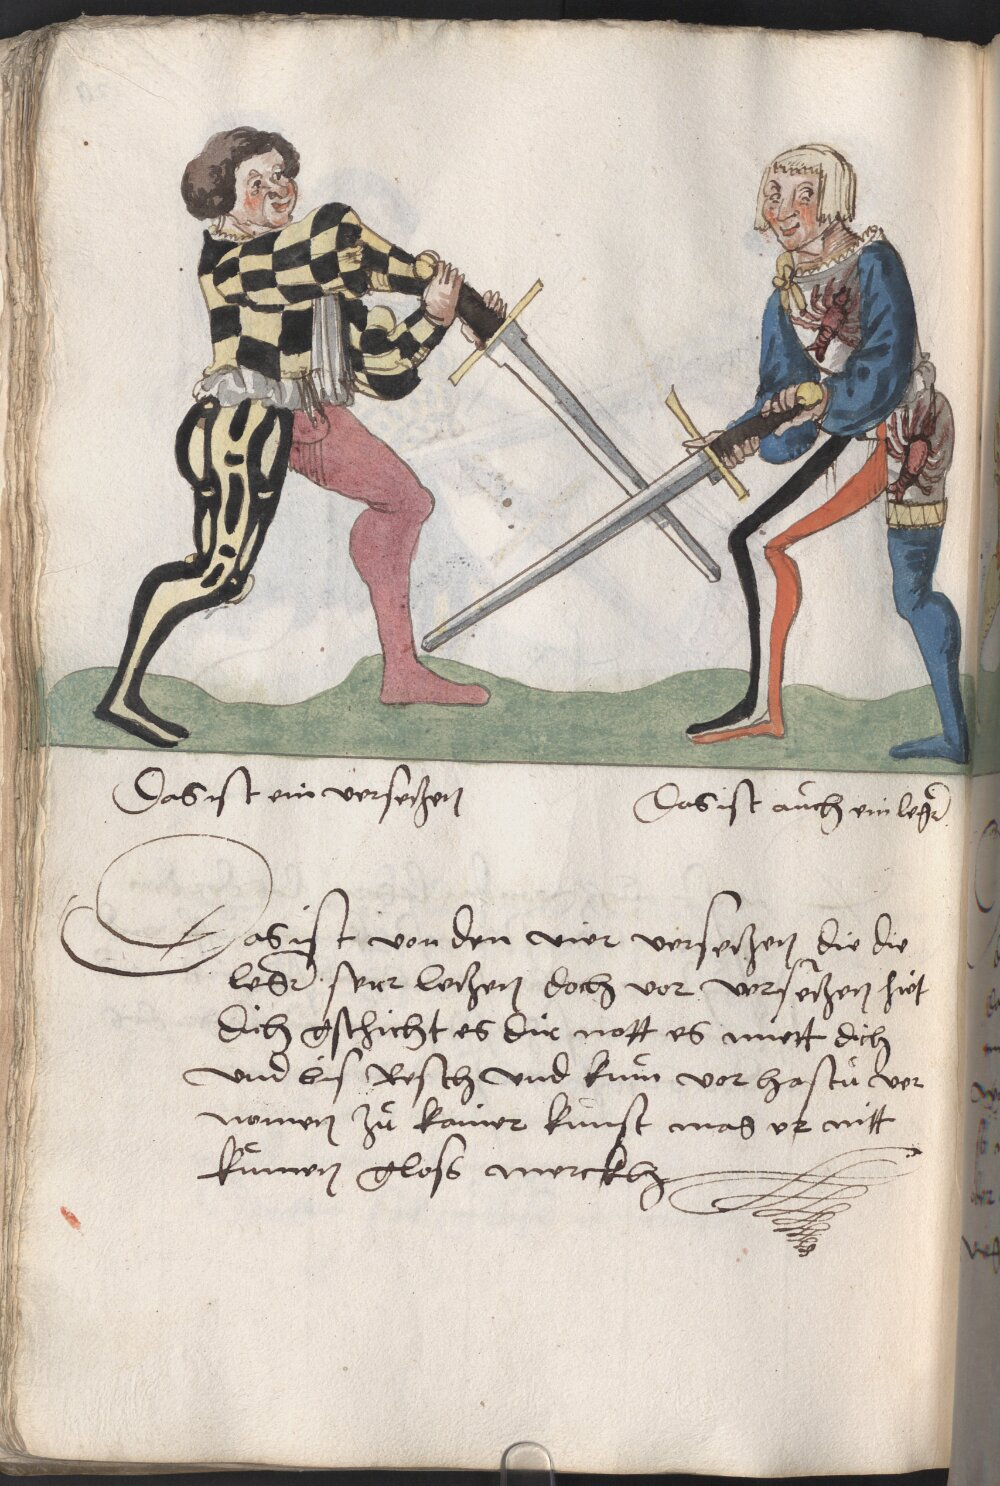 Das ist ein versetzen
Das ist auch ein leger
Das ist von den vier versetzen die die
leger seer letzen doch vor versetzen hiet
dich gschicht es dir nott es miett dich
und bis Resch und kum vor hastu ver
nomen zu kainer kunst mag er nitt
kumen gloss merckh